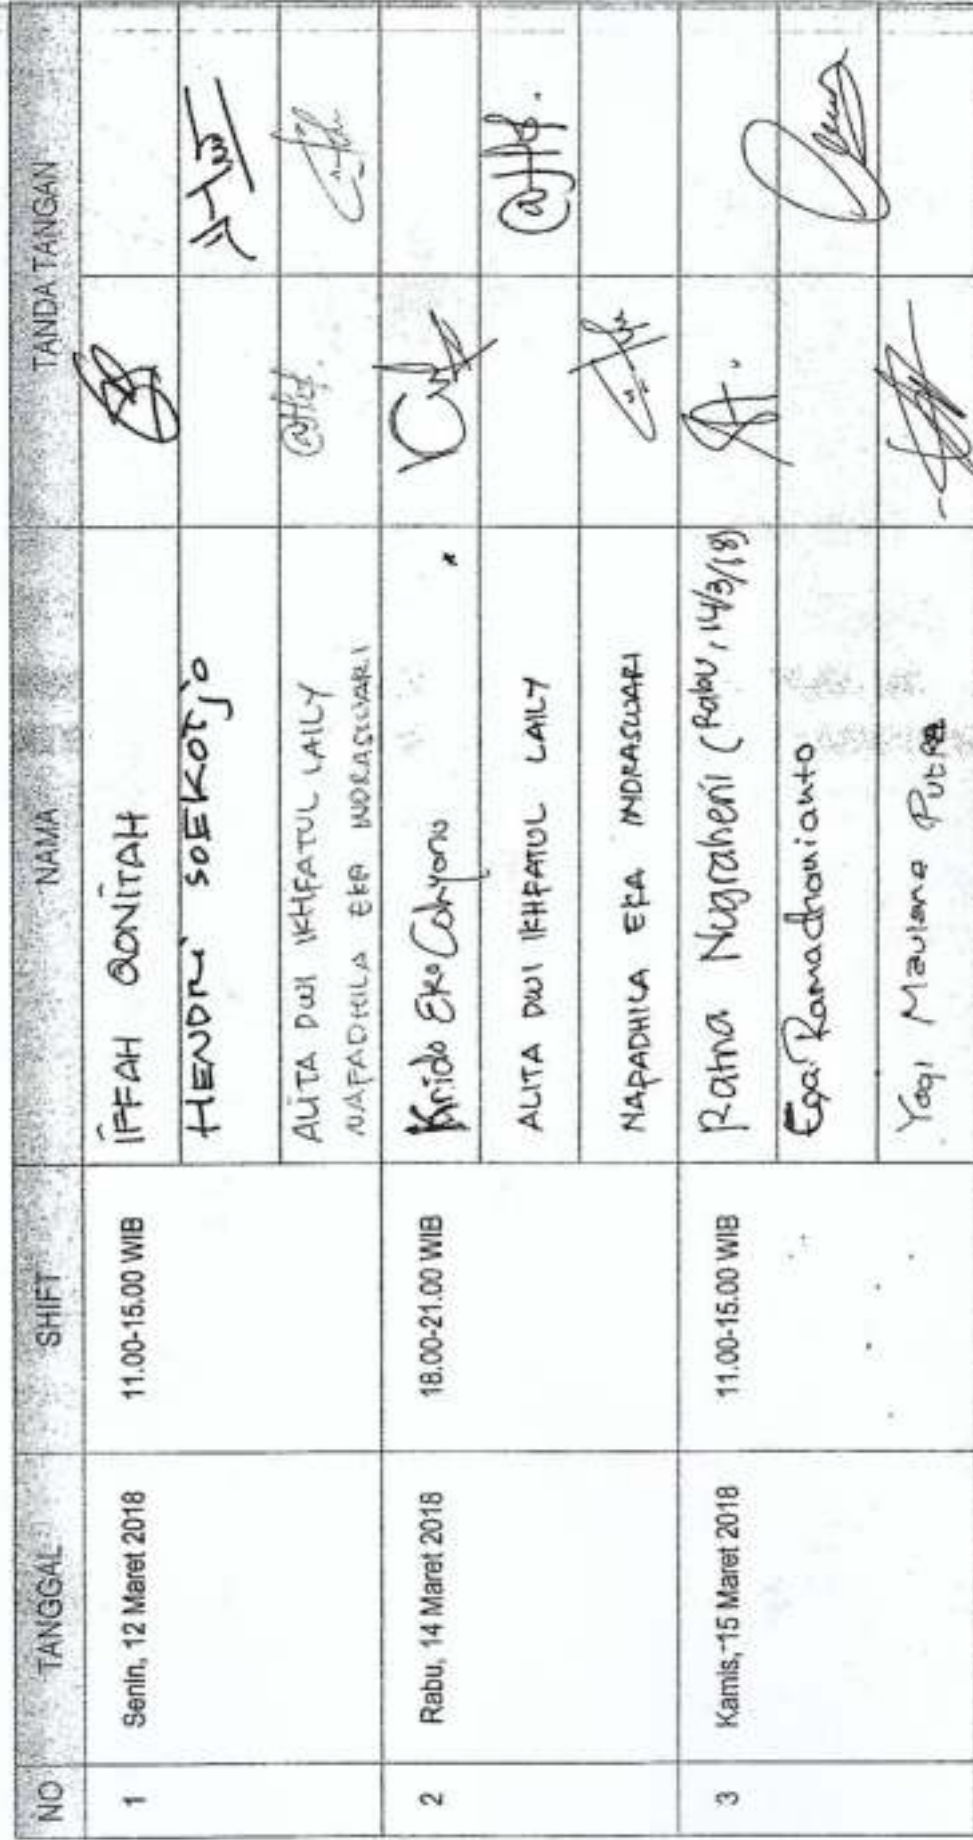 NO TANGGAL SHIFT NAMA TANDA TANGAN
1 Senin, 12 Maret 2018 11.00-15.00 WIB IFFAH QONITAH
HENDRI SOEKOTJO
ALITA DWI IKHFATUL LAILY
NAFADHILA EKA INDRASWARI
2 Rabu, 14 Maret 2018 18.00-21.00 WIB Krido Eko Cahyono
ALITA DWI IKHFATUL LAILY
NAFADHILA EKA INDRASWARI
3 Kamis, 15 Maret 2018 11.00-15.00 WIB Ratna Nugraheni (Rabu, 14/3/18)
Ega Ramadhanianto
Yogi Maulana Putra